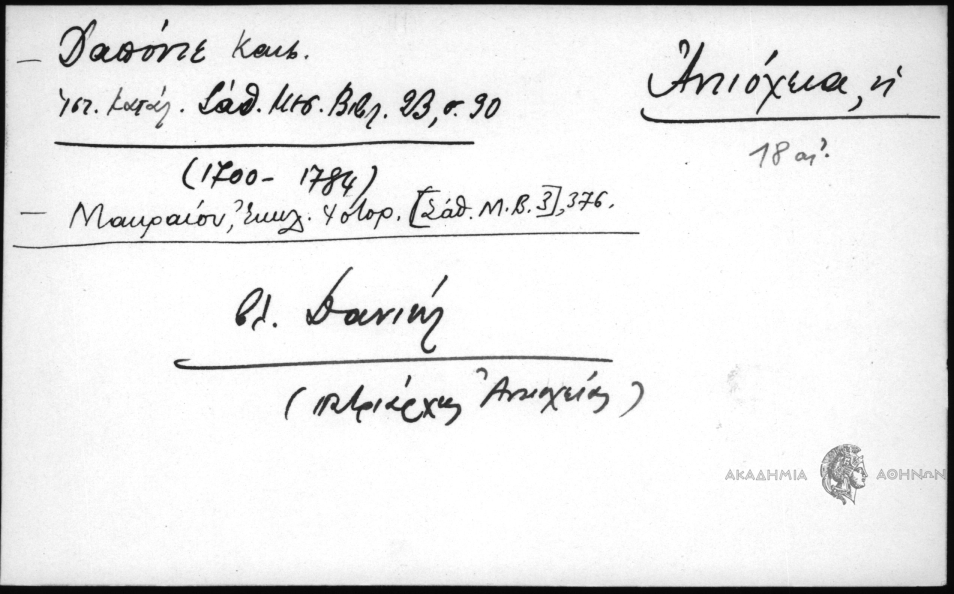 — Δαπόντε Κωνσ.
Ἱστ. Κατάλ. Σάθ. Μεσ. Βιβλ. 2Β, σ. 90
(1700 - 1784)
— Μακραίου, Ἐκκλ. Ἱστορ. [Σάθ. Μ. Β. 3], 376.
βλ. Δανιήλ
(πατριάρχης Ἀντιοχείας)
Ἀντιόχεια, ἡ
18 αἰ.
ΑΚΑΔΗΜΙΑ ΑΘΗΝΩΝ